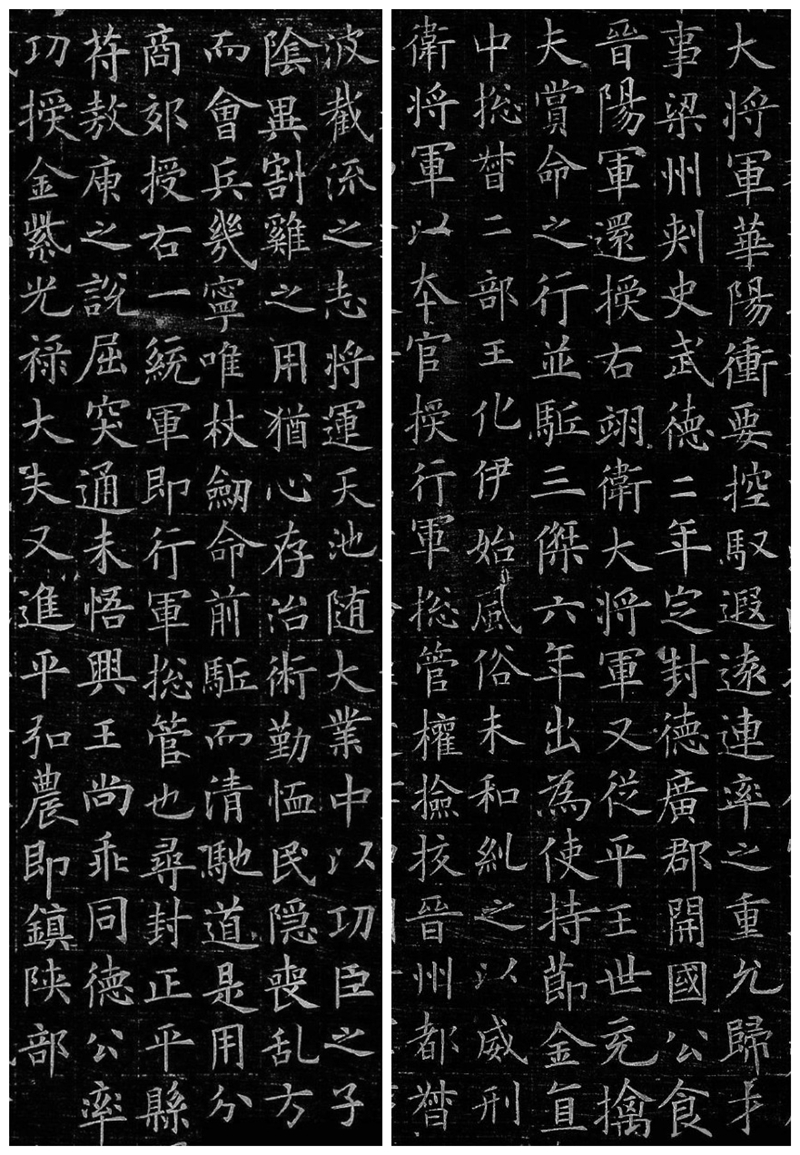 大将軍華陽衝要控馭遐遠連率之重允歸才
事梁州刾史武德二年㝎封德廣郡開國公食
晉陽軍還授右翊衛大将軍又従平王世充擒
夫賞命之行並駈三傑六年出為使持莭金直
中捴督二部王化伊始風俗未和糺之以威刑
衛将軍以夲官授行軍捴管權撿挍晉州都督
波截流之志将運天池随大業中以功臣之子
陰異割雞之用猶心存治術勤恤民隠喪乱方
而會兵幾寧唯杖劒命前駈而清馳道是用分
商郊授右一統軍即行軍捴管也尋封正平縣
苻敖庾之說屈突通未悟興王尚乖同德公率
功授金紫光禄大夫又進平弘農即鎮陝部